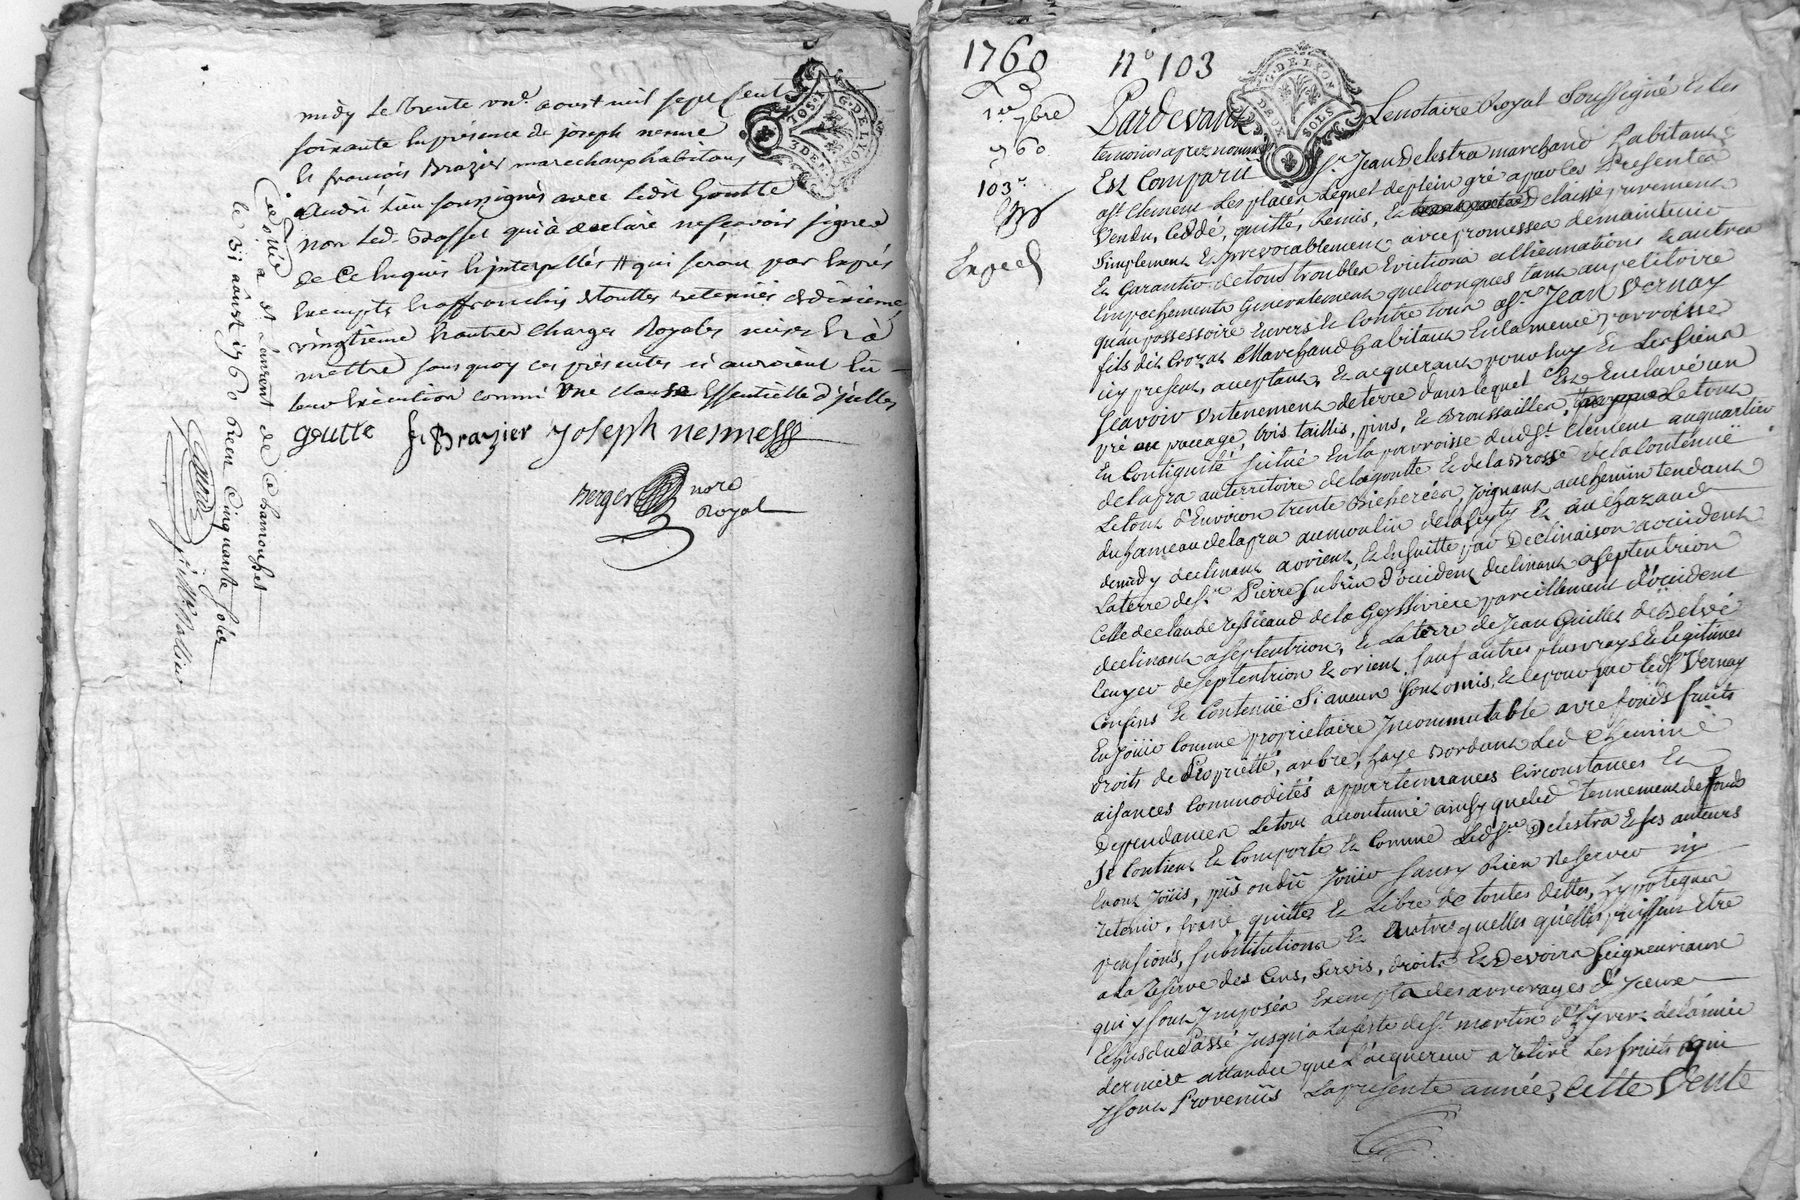 midy le trente une aoust mil sept Cent
soixante En présence de joseph nesme
Et françois Brazier marechaux habitans
audit Lieu soussignés avec Ledit Goutte
non Led. Basset qui a declaré ne scavoir signer
de Ce Enquis Et interpellés # qui seront par Exprés
Exempts Et affranchis de touttes retenües de dixieme,
vingtieme Et autres Charges Royales mises Et à
mettre sans quoy ces présentes n'auroient Eu
leur Exécution comme une clause Essentielle d'jcelles
goutte fr Brazier Joseph nesmes
Berger nore
Royal
Controllé a St Laurent de Chamousset
le 31 aoust 1760 Reçu Cinquante sols
G. DE LYON
1760
n° 103
7bre
1760
103e
Exped
G. DE LYON
DEUX SOLS
Pardevant Le notaire Royal Soussigné Et les
temoins aprez nommés
Est Comparu Sr. Jean Delestra marchand habitant
a St. Clement Les places Lequel de plein gré a par les Presentes
Vendu, Ceddé, quitté, Remis, Et delaissé purement
Simplement Et Irrevocablement avec promesse de maintenir
Et Garantir de tous troubles Evictions alliennations Et autres
Empechements Generalement quelconques tant au petitoire
quau possessoire Envers Et Contre tous a Sr. Jean Vernay
fils dit Crozat Marchand habitant En la meme parroisse
icy present, acceptant, Et acquerant pour luy Et Les Siens
Scavoir Un tenement de terre dans lequel Est Enclavé un
pré ou paccage, bois taillis, pins, Et Broussailles, Le tout
En Contiguité Situé En la parroisse dud St. Clement au quartier
de lapra au territoire de la goutte Et de la Brosse de la Contenuë
Le tout d'Environ trente Bicherées, Joignant au chemin tendant
du hameau de lapra au moulin
de midy declinant a orient, Et En suitte par Declinaison a occident
La terre de Sr. Pierre Subrin d'occident declinant a Septentrion
Celle de Claude pareillement d'occident
declinant a Septentrion, Et La terre de Jean
de Septentrion Et orient, Sauf autres plus vrays Et legitimes
Confins Et Contenuë Si aucun Sont omis, Et le pour par led Sr Vernay
En Jöüir Comme proprietaire Incommutable avec fonds fruits
droits de Propriété, arbre, haye Bordant Led Chemin
aisances Commodités appartenances Circonstances Et
Dependances Le tout accoutumé ainsy que led tennement de fonds
Se Contient Et Comporte Et Comme Ledit Sr Delestra Et ses auteurs
En ont Jöüis, pû ou dû Jöüir Sans y Rien Reserver ny
retenir, franc, quitte Et Libre de toutes dettes, hypoteques
pensions, Substitutions Et autres quelles qu'elles puissent Etre
a La Reserve des Cens, Servis, droits Et Devoirs Seigneuriaux
qui y Sont Imposés Exempts des arrerages d'Iceux
Et Jusqu'a La feste de St. martin d'hyver de l'année
derniere attandu que L'acquereur a retiré Les fruits qui
y Sont Provenüs La presente année, Cette Vente